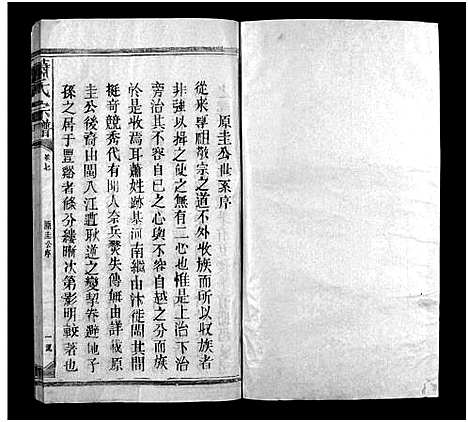 原圭公世系序
從來尊祖敬宗之道不外收族而所以收族者
非強以揖之使之無有二心也惟是上治下治
旁治其本不容自已之心與不容自越之分而族
於是收焉耳蕭姓跡基河南繼由汴徙閩其間
挺奇競秀代有聞人奈兵燹失傳無由詳載原
圭公後裔由閩入江遭耿道之變挈眷避地子
孫之居于豐谿者條分縷晰次第影明較著也
蕭氏宗譜
卷七
原圭公序
一